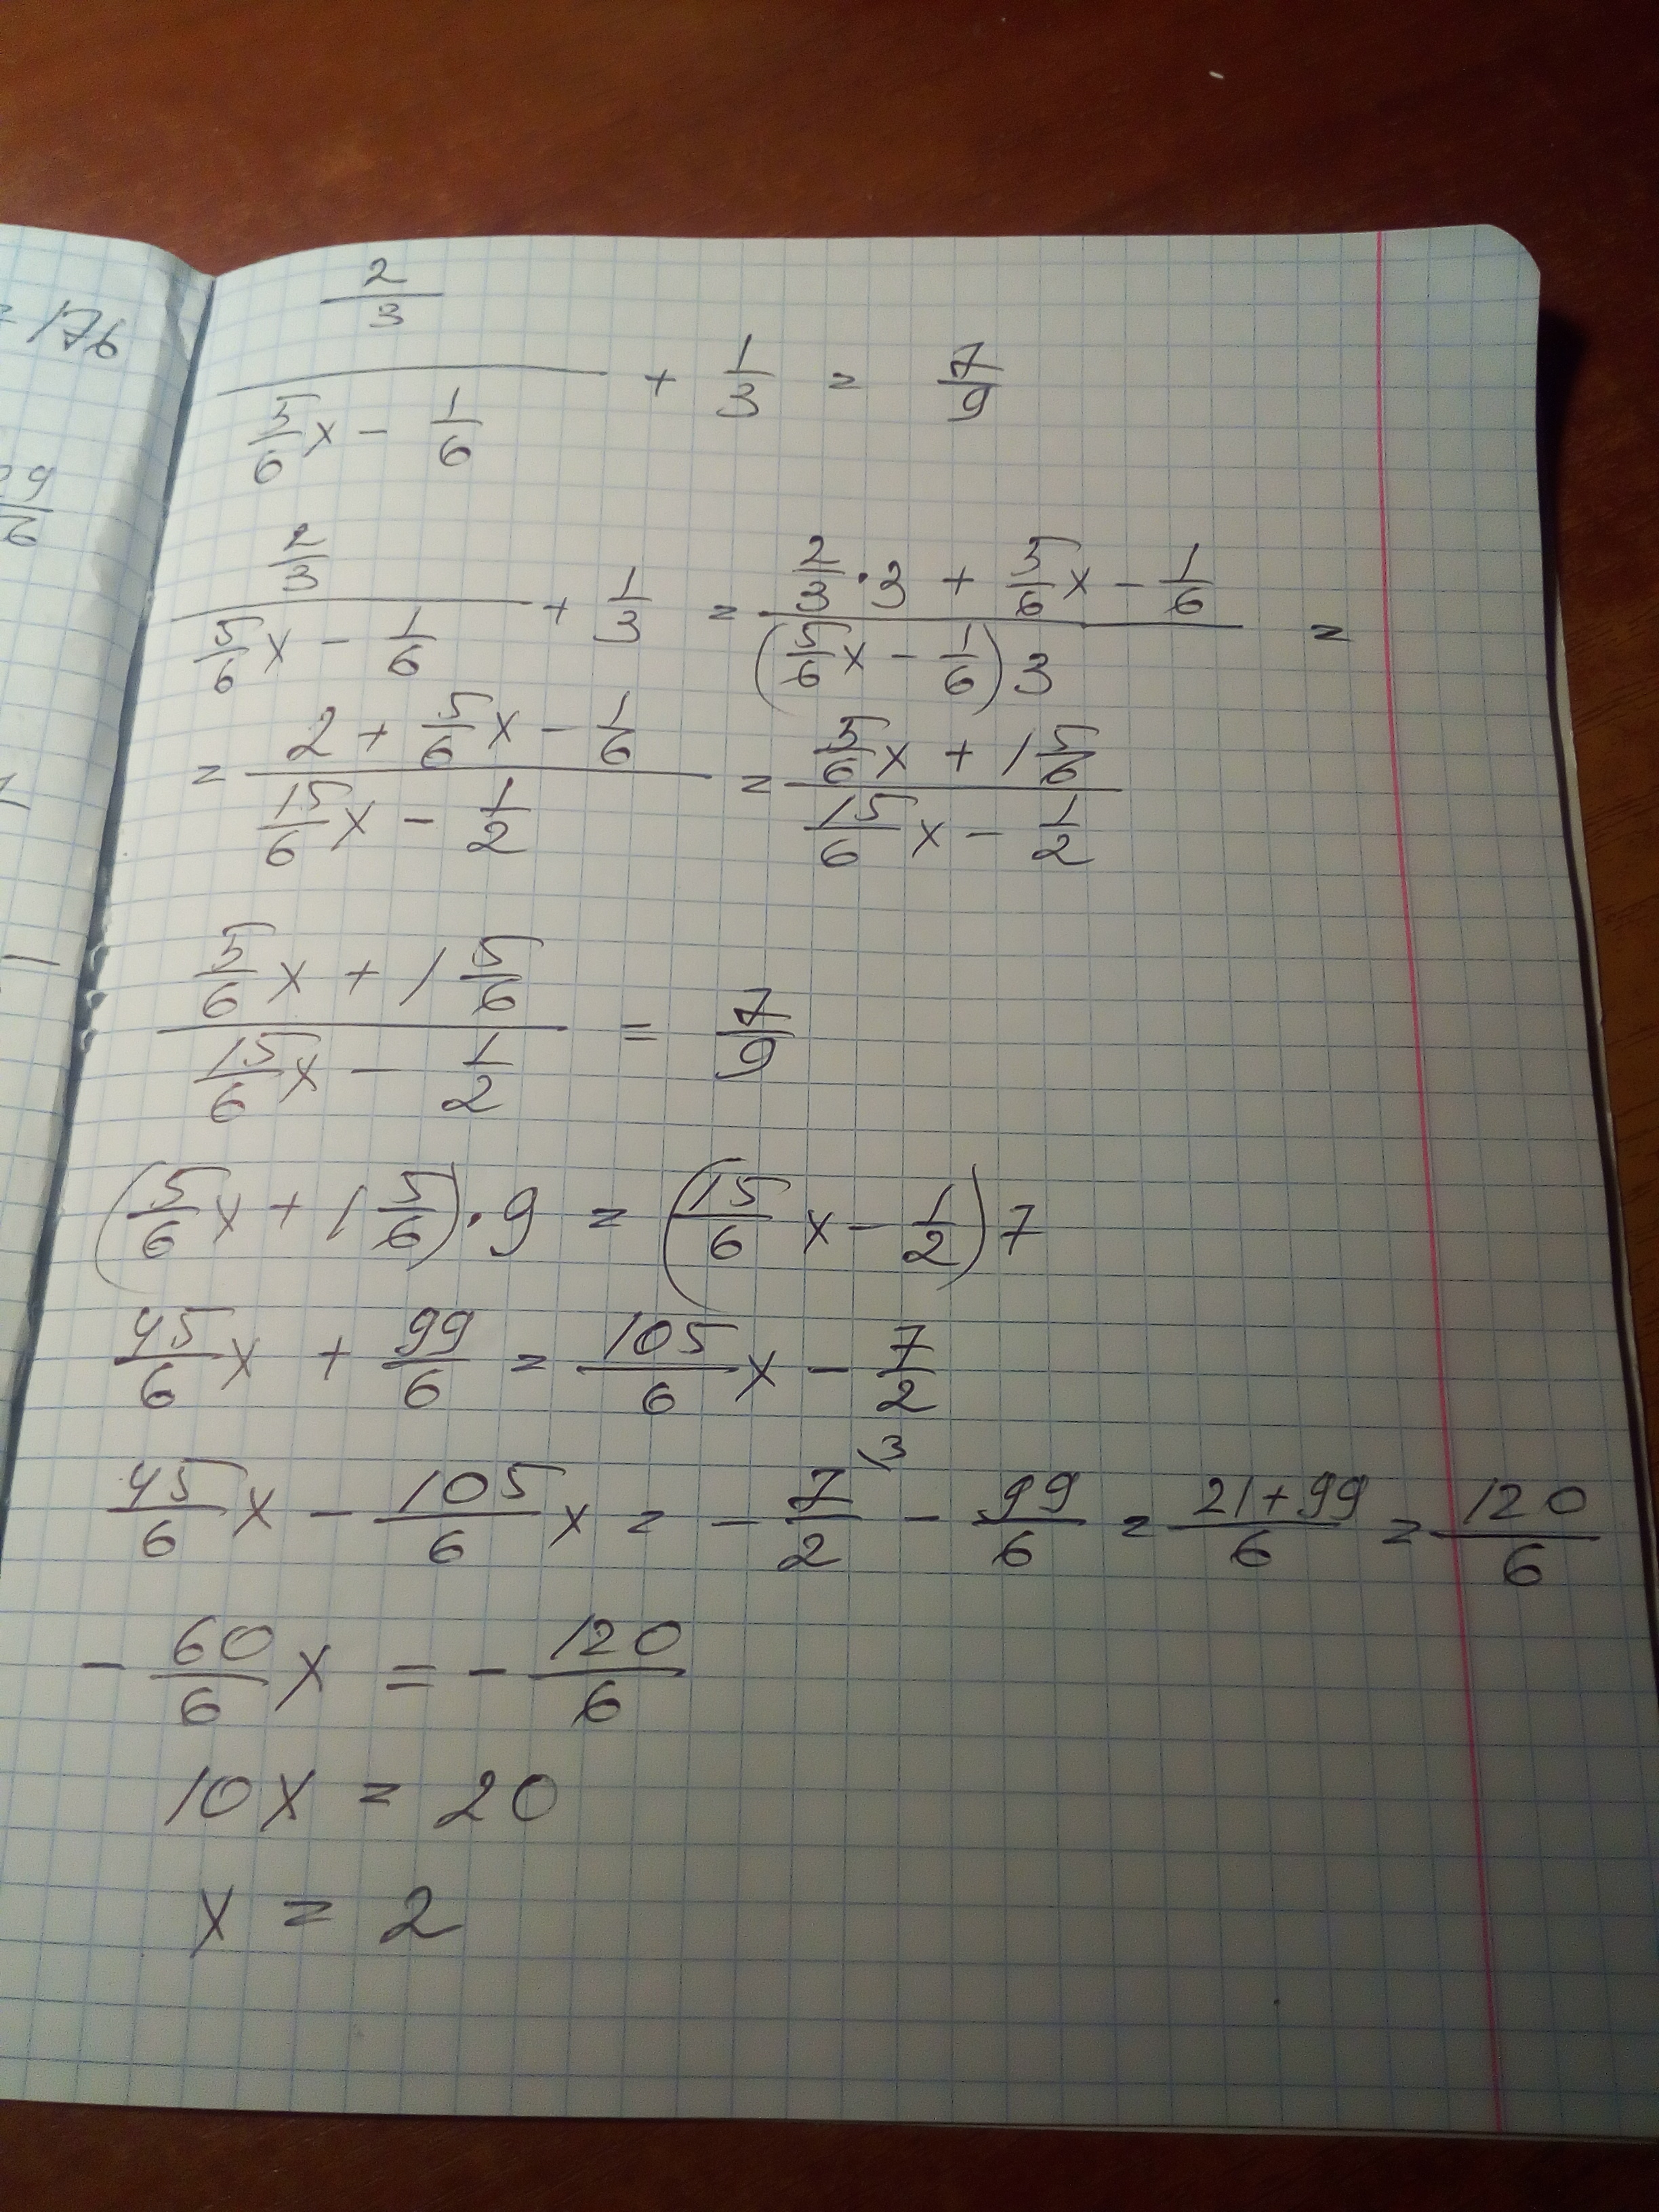 = 176
29/6
(2/3)/(5/6 x - 1/6) + 1/3 = 7/9
(2/3)/(5/6 x - 1/6) + 1/3 = (2/3 · 3 + 5/6 x - 1/6)/((5/6 x - 1/6) 3) =
= (2 + 5/6 x - 1/6)/(15/6 x - 1/2) = (5/6 x + 1 5/6)/(15/6 x - 1/2)
(5/6 x + 1 5/6)/(15/6 x - 1/2) = 7/9
(5/6 x + 1 5/6) · 9 = (15/6 x - 1/2) 7
45/6 x + 99/6 = 105/6 x - 7/2
45/6 x - 105/6 x = - 7/2 \3 - 99/6 = (21 + 99)/6 = 120/6
- 60/6 x = - 120/6
10x = 20
x = 2